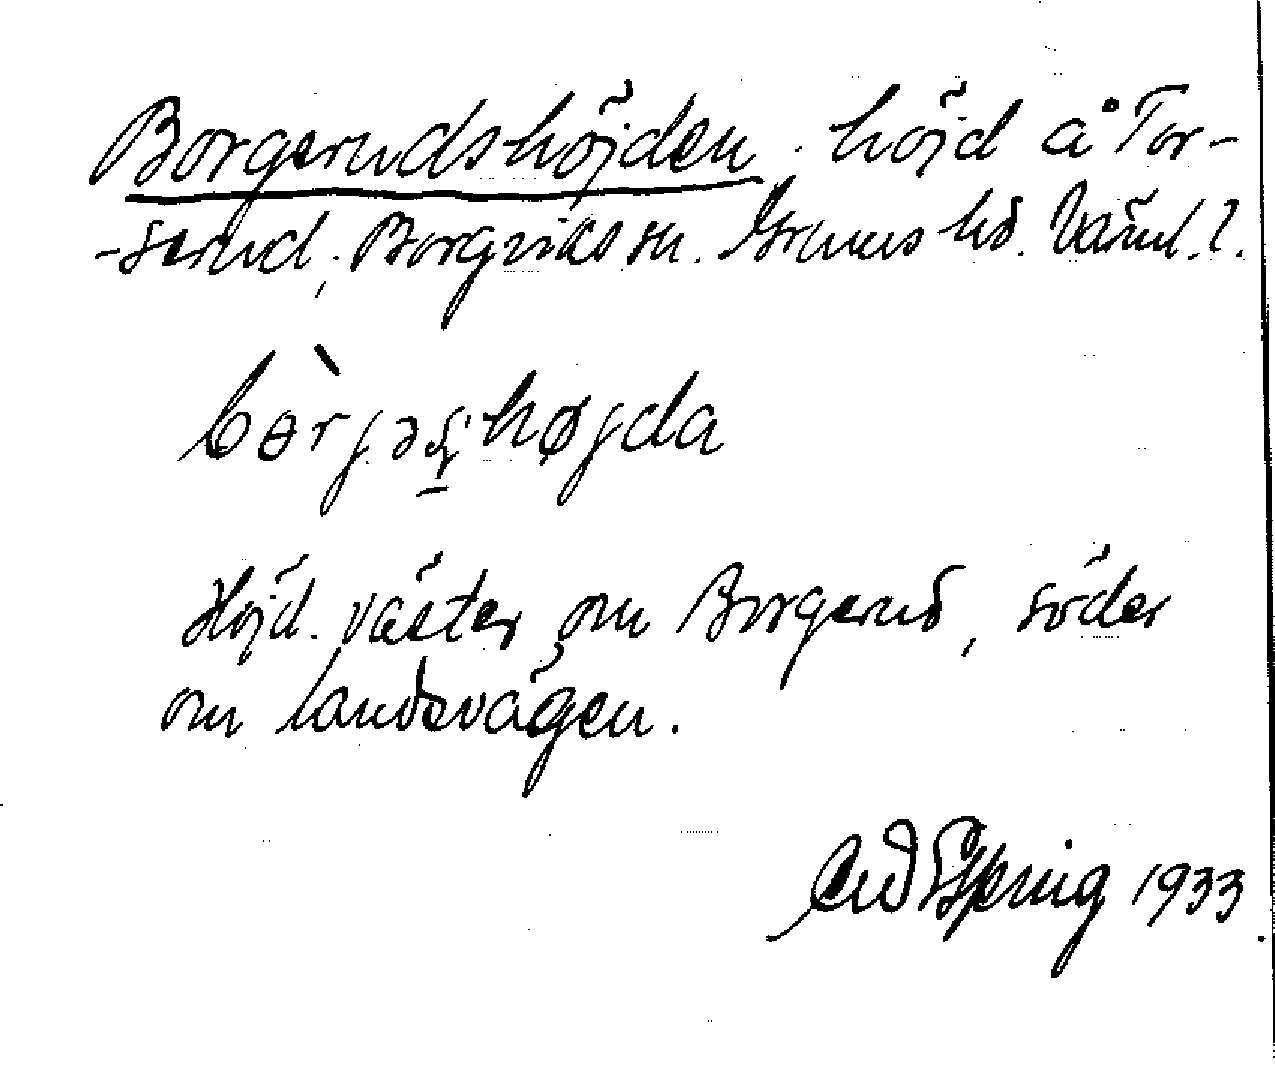 Borgerudshöjden höjd å Tor-
-serud, Borgviks sn. Grums hd. Värml. l.
bòrjəʂhøjda
Höjd väster om Borgerud, söder
om landsvägen.
1933